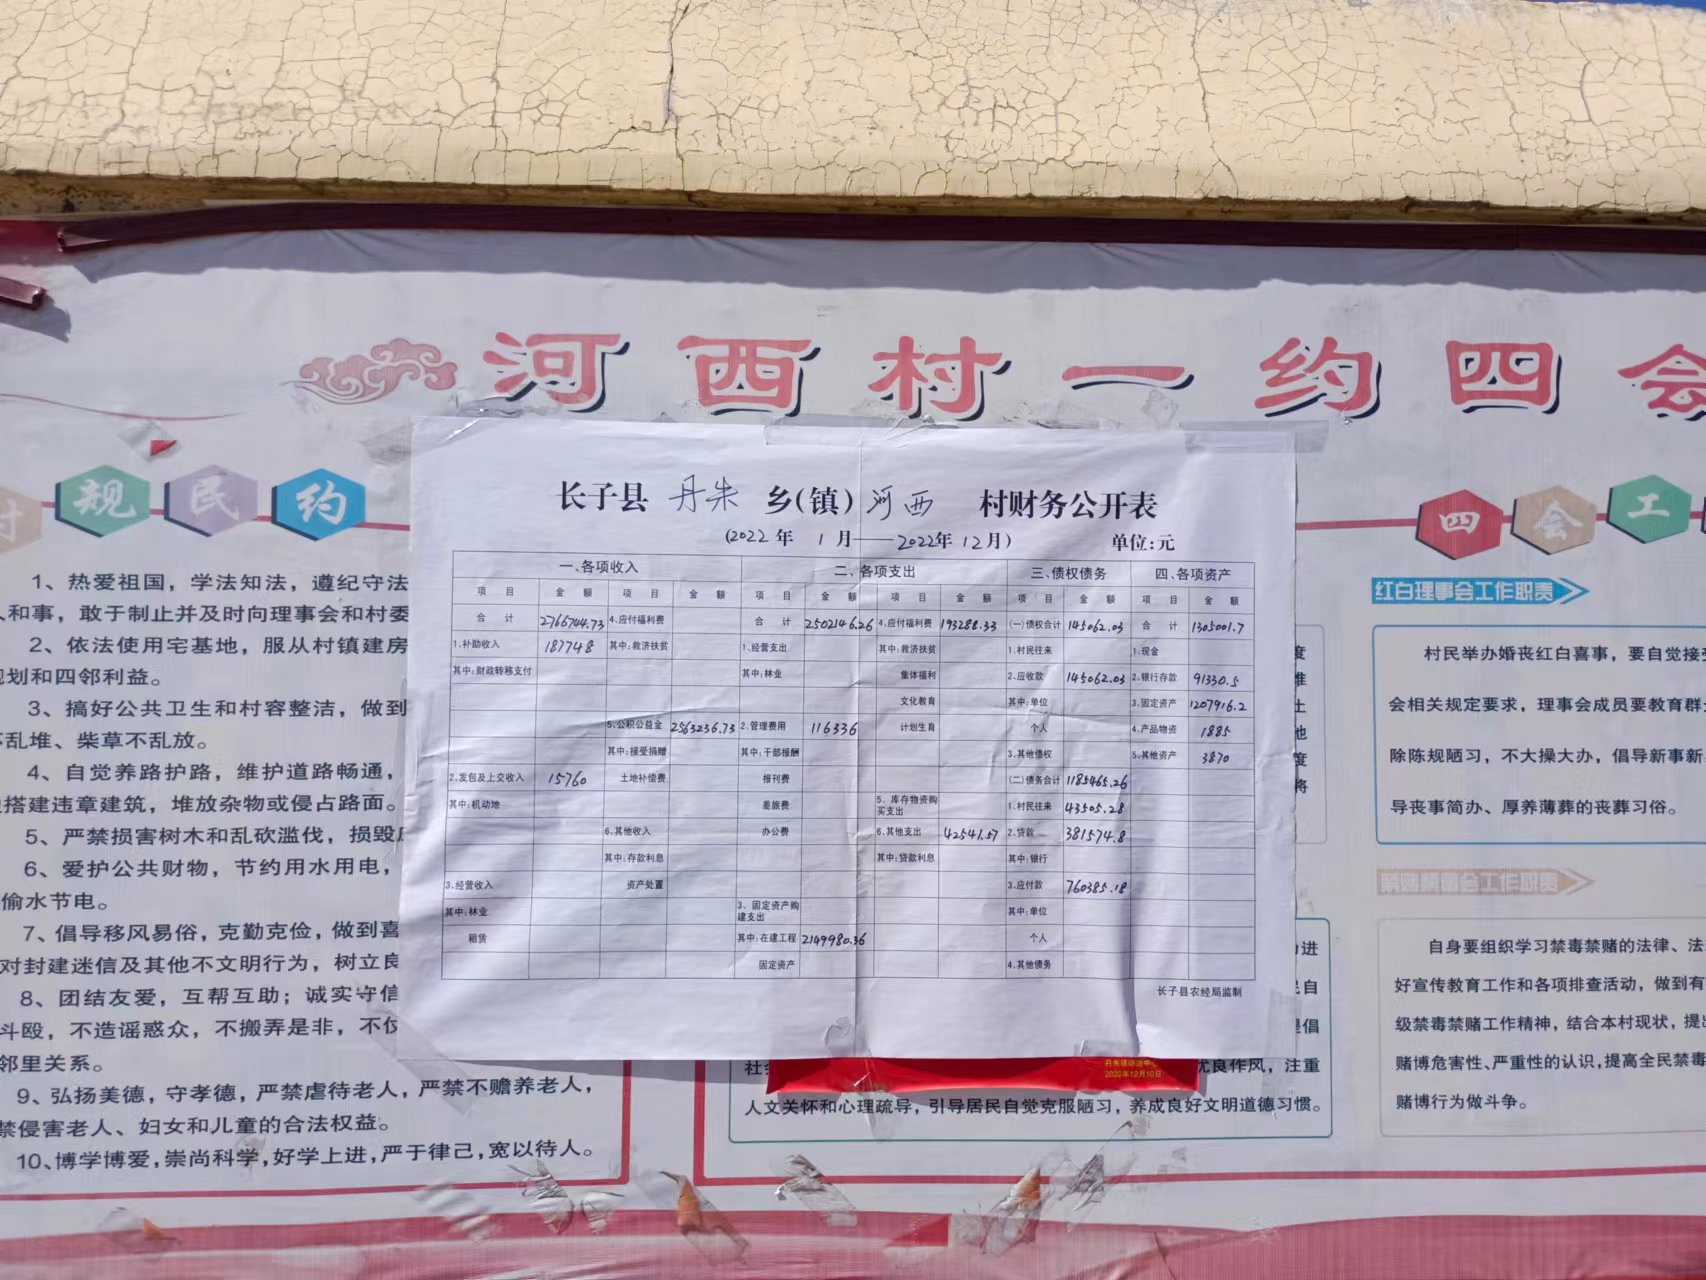 河西村一约四会
规民约
四会工
1、热爱祖国，学法知法，遵纪守法
人和事，敢于制止并及时向理事会和村委
2、依法使用宅基地，服从村镇建房
规划和四邻利益。
3、搞好公共卫生和村容整洁，做到
不乱堆、柴草不乱放。
4、自觉养路护路，维护道路畅通，
搭建违章建筑，堆放杂物或侵占路面。
5、严禁损害树木和乱砍滥伐，损毁
6、爱护公共财物，节约用水用电，
偷水节电。
7、倡导移风易俗，克勤克俭，做到喜
对封建迷信及其他不文明行为，树立良
8、团结友爱，互帮互助；诚实守信
斗殴，不造谣惑众，不搬弄是非，不仅
邻里关系。
9、弘扬美德，守孝德，严禁虐待老人，严禁不赡养老人，
禁侵害老人、妇女和儿童的合法权益。
10、博学博爱，崇尚科学，好学上进，严于律己，宽以待人。
长子县 丹朱 乡(镇) 河西 村财务公开表
(2022年 1月——2022年12月) 单位:元
一、各项收入 二、各项支出 三、债权债务 四、各项资产
项目 金额 项目 金额 项目 金额 项目 金额 项目 金额 项目 金额
合计 2766744.73 4、应付福利费 合计 2502146.26 4、应付福利费 193288.33 (一)债权合计 145062.03 合计 1305001.7
1、补助收入 187748 其中:救济扶贫 1、经营支出 其中:救济扶贫 1、村民往来 1、现金
其中:财政转移支付 其中:林业 集体福利 2、应收款 145062.03 2、银行存款 91330.5
文化教育 其中:单位 3、固定资产 1207916.2
5、公积公益金 2563236.73 2、管理费用 116336 计划生育 个人 4、产品物资 1885
其中:接受捐赠 其中:干部报酬 3、其他债权 5、其他资产 3870
2、发包及上交收入 15760 土地补偿费 报刊费 (二)债务合计 1185465.26
其中:机动地 差旅费 5、库存物资购买支出 1、村民往来 43505.28
6、其他收入 办公费 6、其他支出 42541.57 2、贷款 381574.8
其中:存款利息 其中:贷款利息 其中:银行
3、经营收入 资产处置 3、应付款 760385.18
其中:林业 3、固定资产购建支出 其中:单位
租赁 其中:在建工程 2149980.36 个人
固定资产 4、其他债务
长子县农经局监制
2022年12月10日
优良作风，注重
人文关怀和心理疏导，引导居民自觉克服陋习，养成良好文明道德习惯。
红白理事会工作职责
村民举办婚丧红白喜事，要自觉接受
会相关规定要求，理事会成员要教育群
除陈规陋习，不大操大办，倡导新事新
导丧事简办、厚养薄葬的丧葬习俗。
禁毒禁赌会工作职责
自身要组织学习禁毒禁赌的法律、法
好宣传教育工作和各项排查活动，做到有
级禁毒禁赌工作精神，结合本村现状，提
赌博危害性、严重性的认识，提高全民禁毒
赌博行为做斗争。